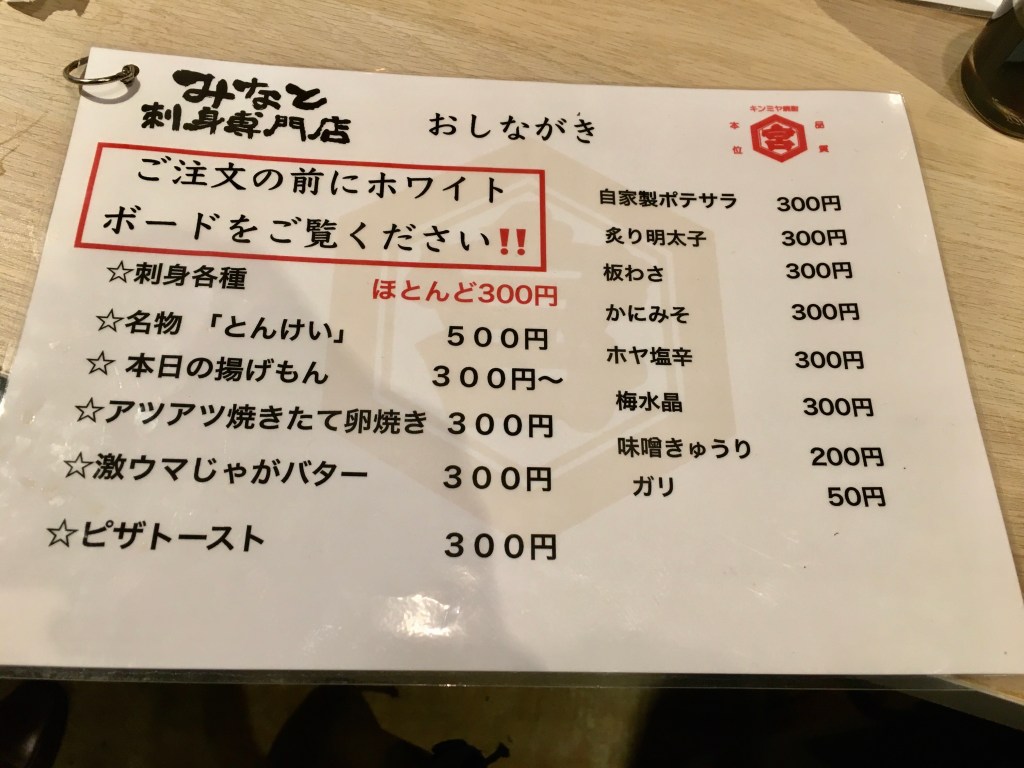 みなと
刺身専門店
おしながき
キンミヤ焼酎
本 品
位 質
宮
ご注文の前にホワイト
ボードをご覧ください‼
☆刺身各種 ほとんど300円
☆名物 「とんけい」 500円
☆ 本日の揚げもん 300円〜
☆アツアツ焼きたて卵焼き 300円
☆激ウマじゃがバター 300円
☆ピザトースト 300円
自家製ポテサラ 300円
炙り明太子 300円
板わさ 300円
かにみそ 300円
ホヤ塩辛 300円
梅水晶 300円
味噌きゅうり 200円
ガリ 50円